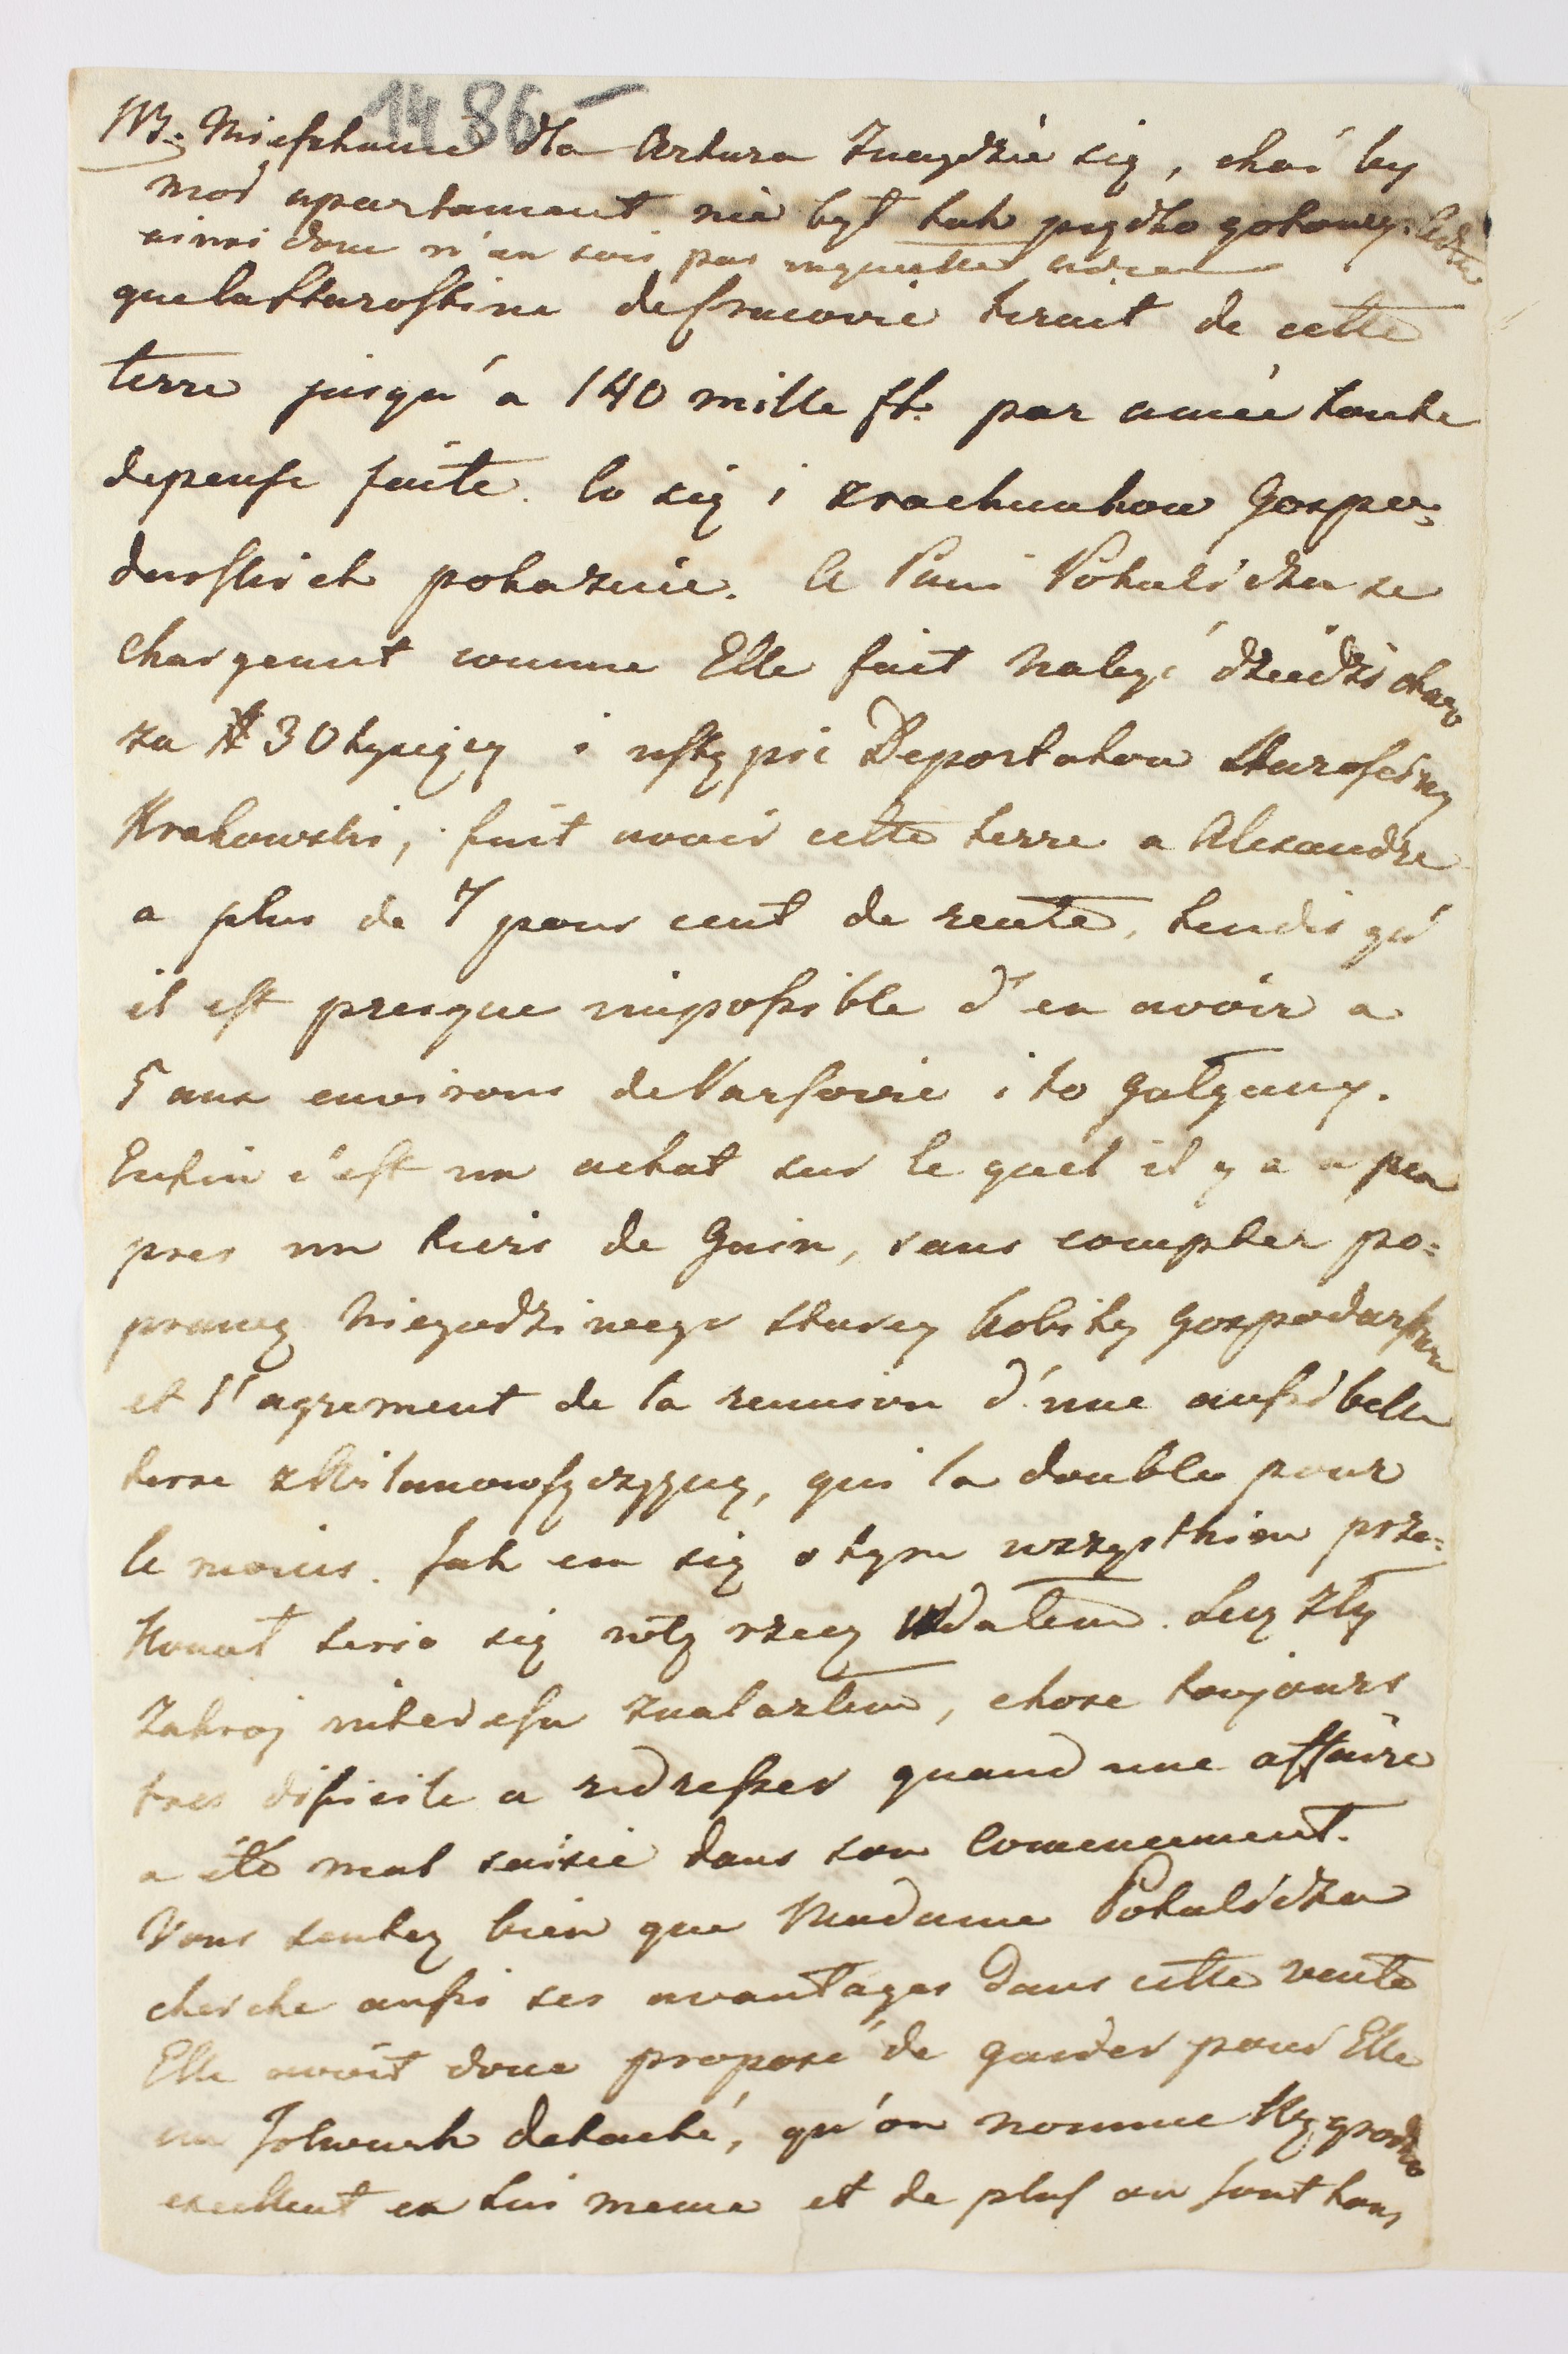 1486
NB. Mieszkanie dla Artura Znaydzie się, choć by
mod apartament nie był tak prędko gotowy
ainsi donc n'en sois pas inquiette
que la Starostine de Cracovie tirait de cette
terre jusqu'a 140 mille fl. par année toute
depense faite. Co się i z rachunkow Gospo:
darskich pokaznie. A Pani Potulicka se
chargeant comme Elle fait nabyć dziedzictwo
za # 30 tysięcy i ustąpić Deportatou Starosciny
Krakowski, fait avoir cette terre a Alexandre
a plus de 7 pour cent de rente, tendis qu'
il est presque impossible d'en avoir a
5 aux environs de Varsovie i to Gałgany.
Enfin c'est un achat sur le quel il y a a peu
pres un tiers de Gain, sans compter po:
prawę Niegodziwego starey Kobity Gospodarstwa
et l'agrement de la reunion d'une aussi belle
terre z Wilanowszczyzną, qui la double pour
le moins. Jak em się o tym wszystkim prze:
Konał serio się w tę rzecz wdałem. Lecz zły
Zakroj interessu znalazłem, chose toujours
tres dificile a redresser quand une affaire
a été mal saisie dans son Comencement.
Vous sentez bien que Madame Potulicka
cherche aussi ses avantages dans cette vente
Elle avoit donc proposé de garder pour Elle
un Folwark detaché, qu'on nomme
excellent en lui meme et de plus ou sont tous